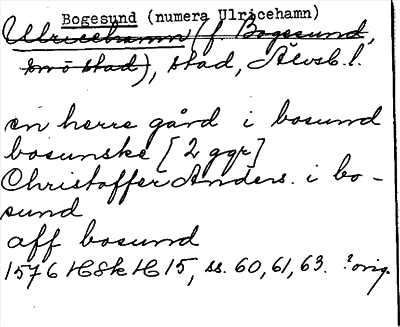 Bogesund (numera Ulricehamn)
Ulricehamn (f Bogesund,
stad), stad, Älvsb. l.
en herre gård i bosund
bosunske [2 ggr]
Christoffer Anders. i bo-
sund
aff bosund
1576 HSkH 15, ss. 60, 61, 63. ?orig.